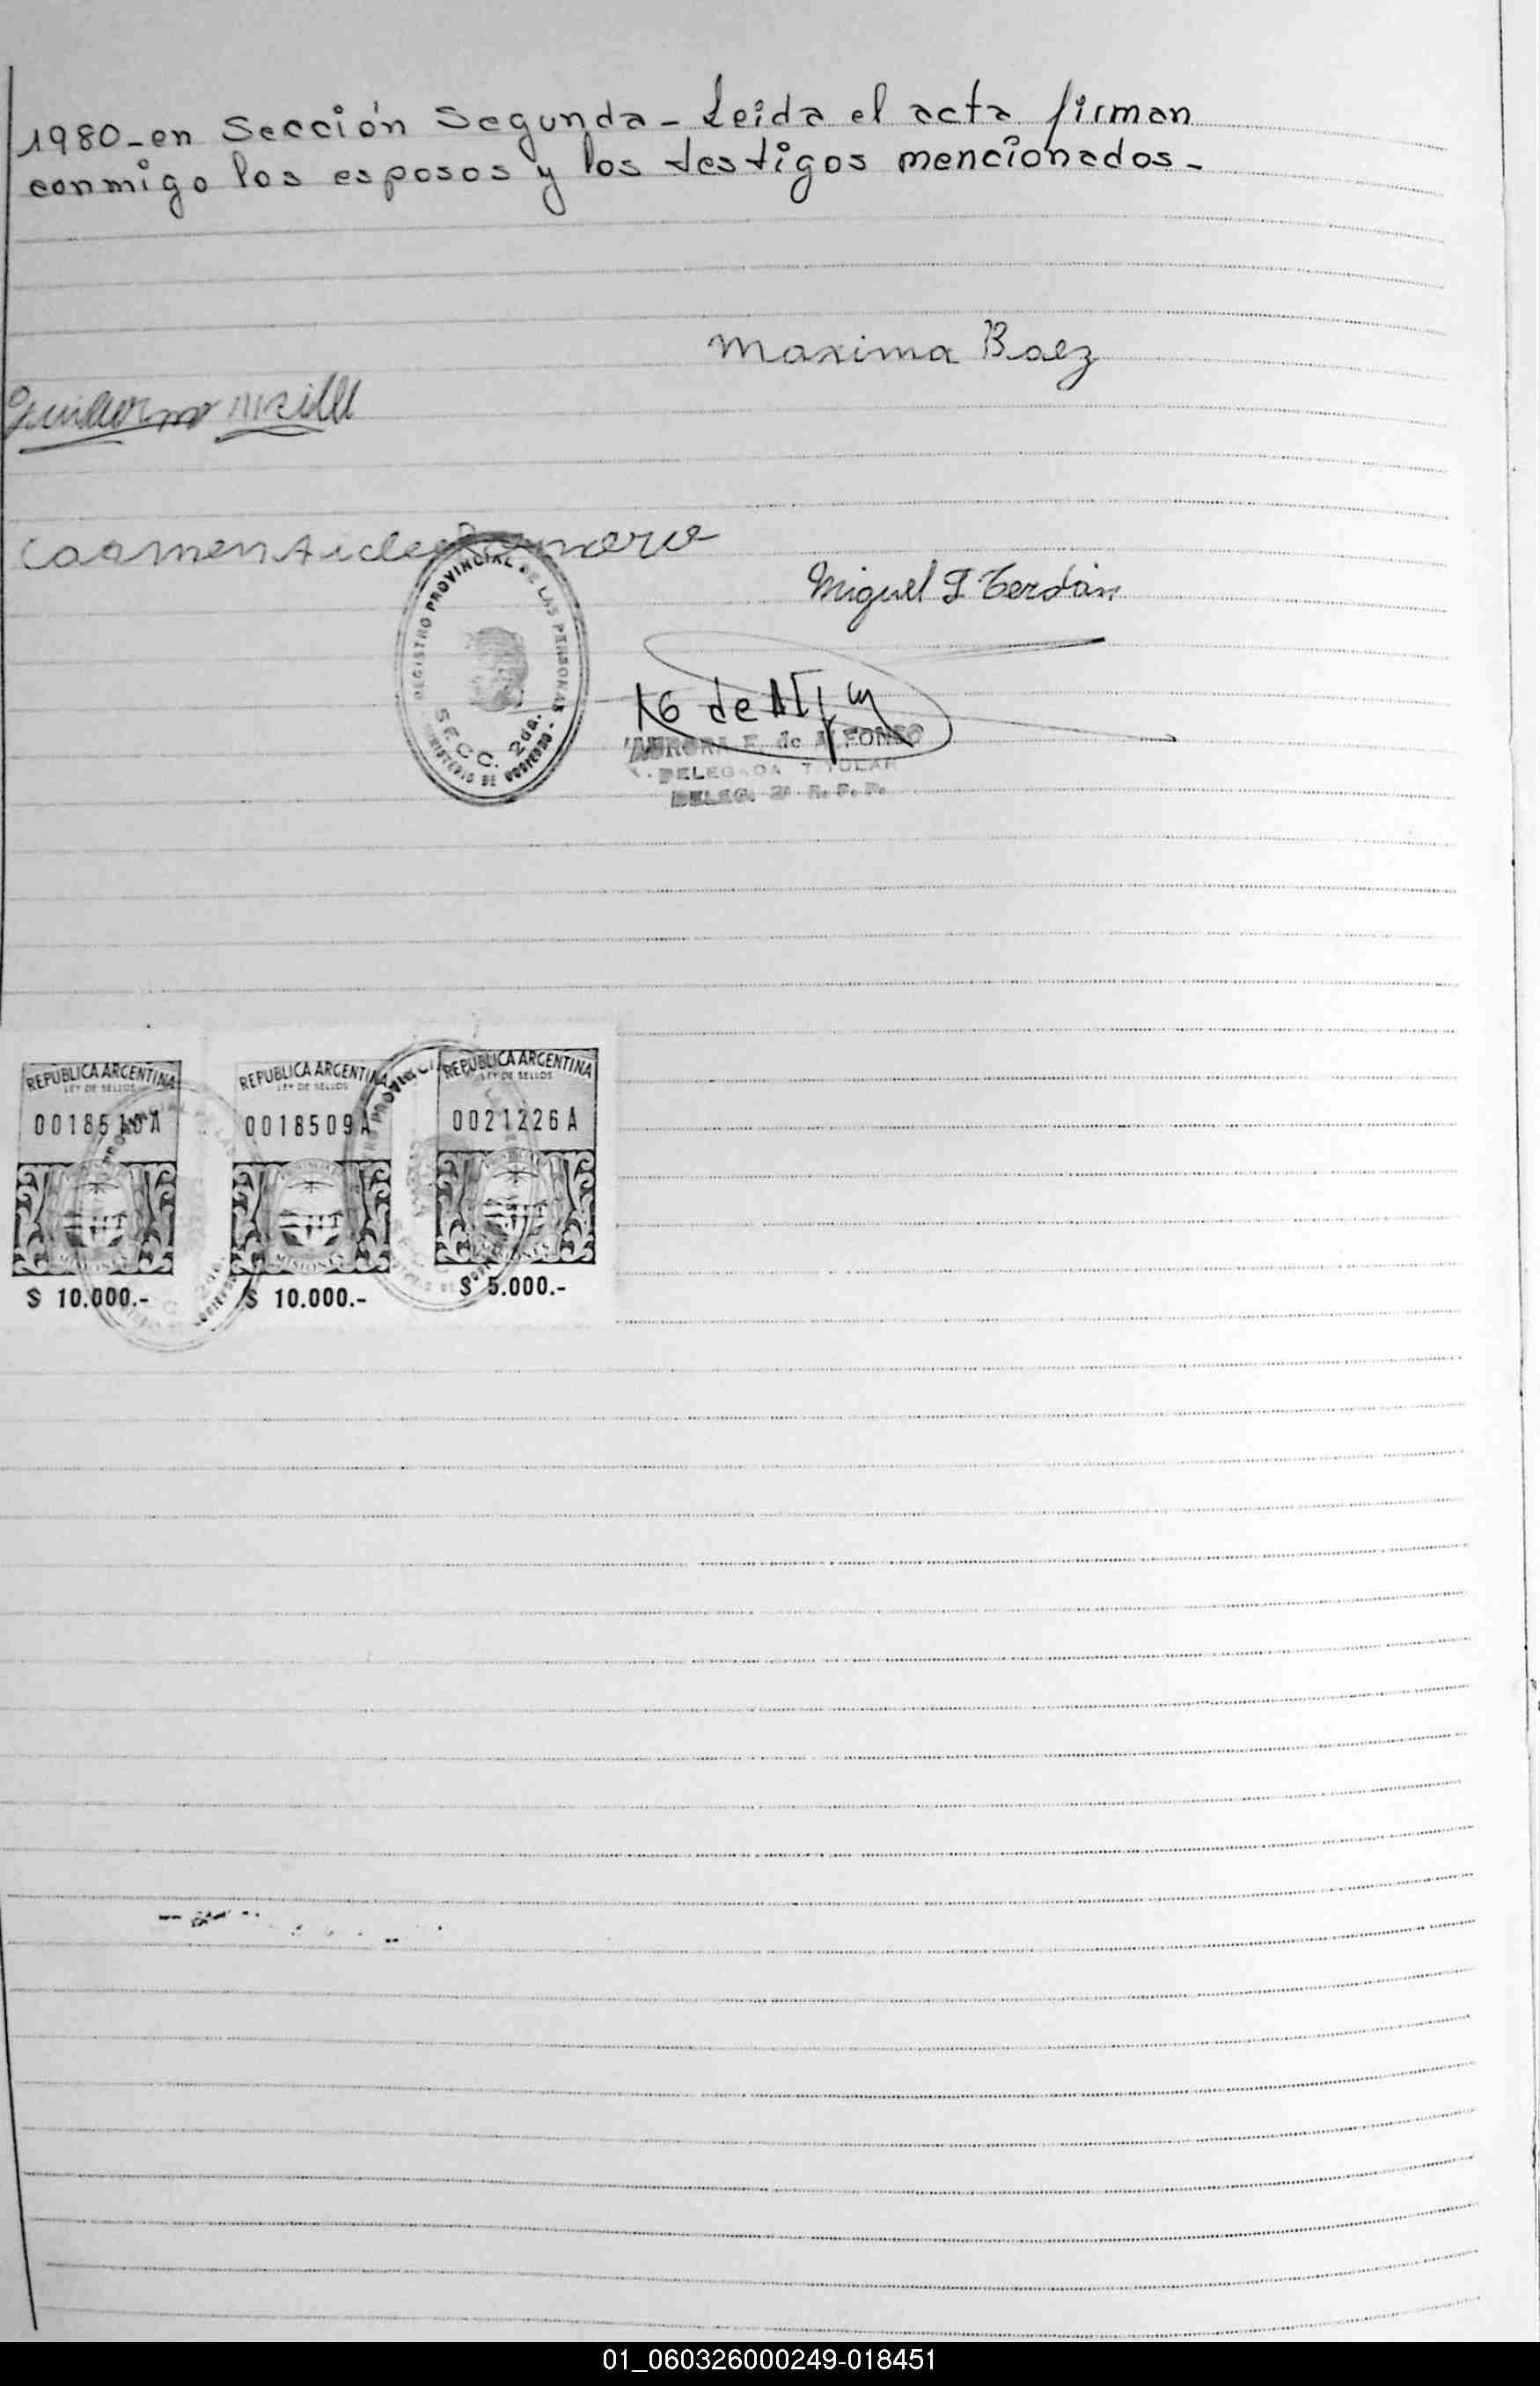 1980 - en Sección Segunda - Leida el acta firman
conmigo los esposos y los testigos mencionados -
Maxima Baez
Guillermo
Carmen
Miguel Terdán
REGISTRO PROVINCIAL DE LAS PERSONAS
SECC. 2da.
MINISTERIO DE GOBIERNO
AURORA F. de ALFONSO
DELEGADA TITULAR
DELEG. 2ª R. P. P.
REPUBLICA ARGENTINA REPUBLICA ARGENTINA REPUBLICA ARGENTINA
LEY DE SELLOS LEY DE SELLOS LEY DE SELLOS
0018509A 0021226A
MISIONES MISIONES
$ 10.000.- $ 10.000.- $ 5.000.-
01_060326000249-018451